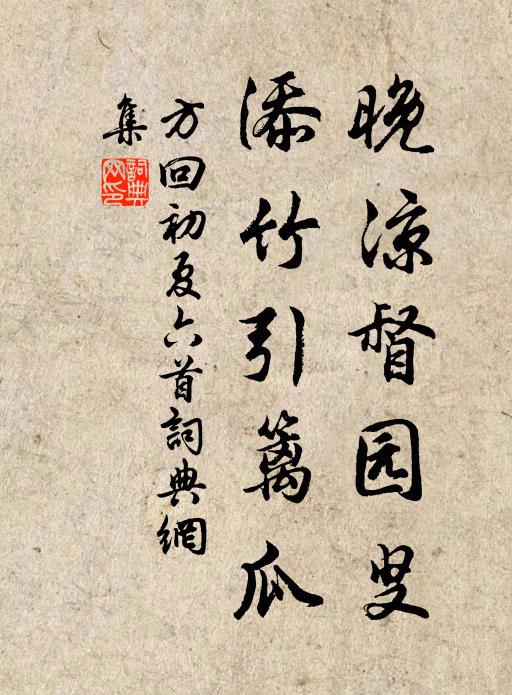 晚凉督园叟
添竹引篱瓜
方回初夏六首詞典網
集
詞典網印